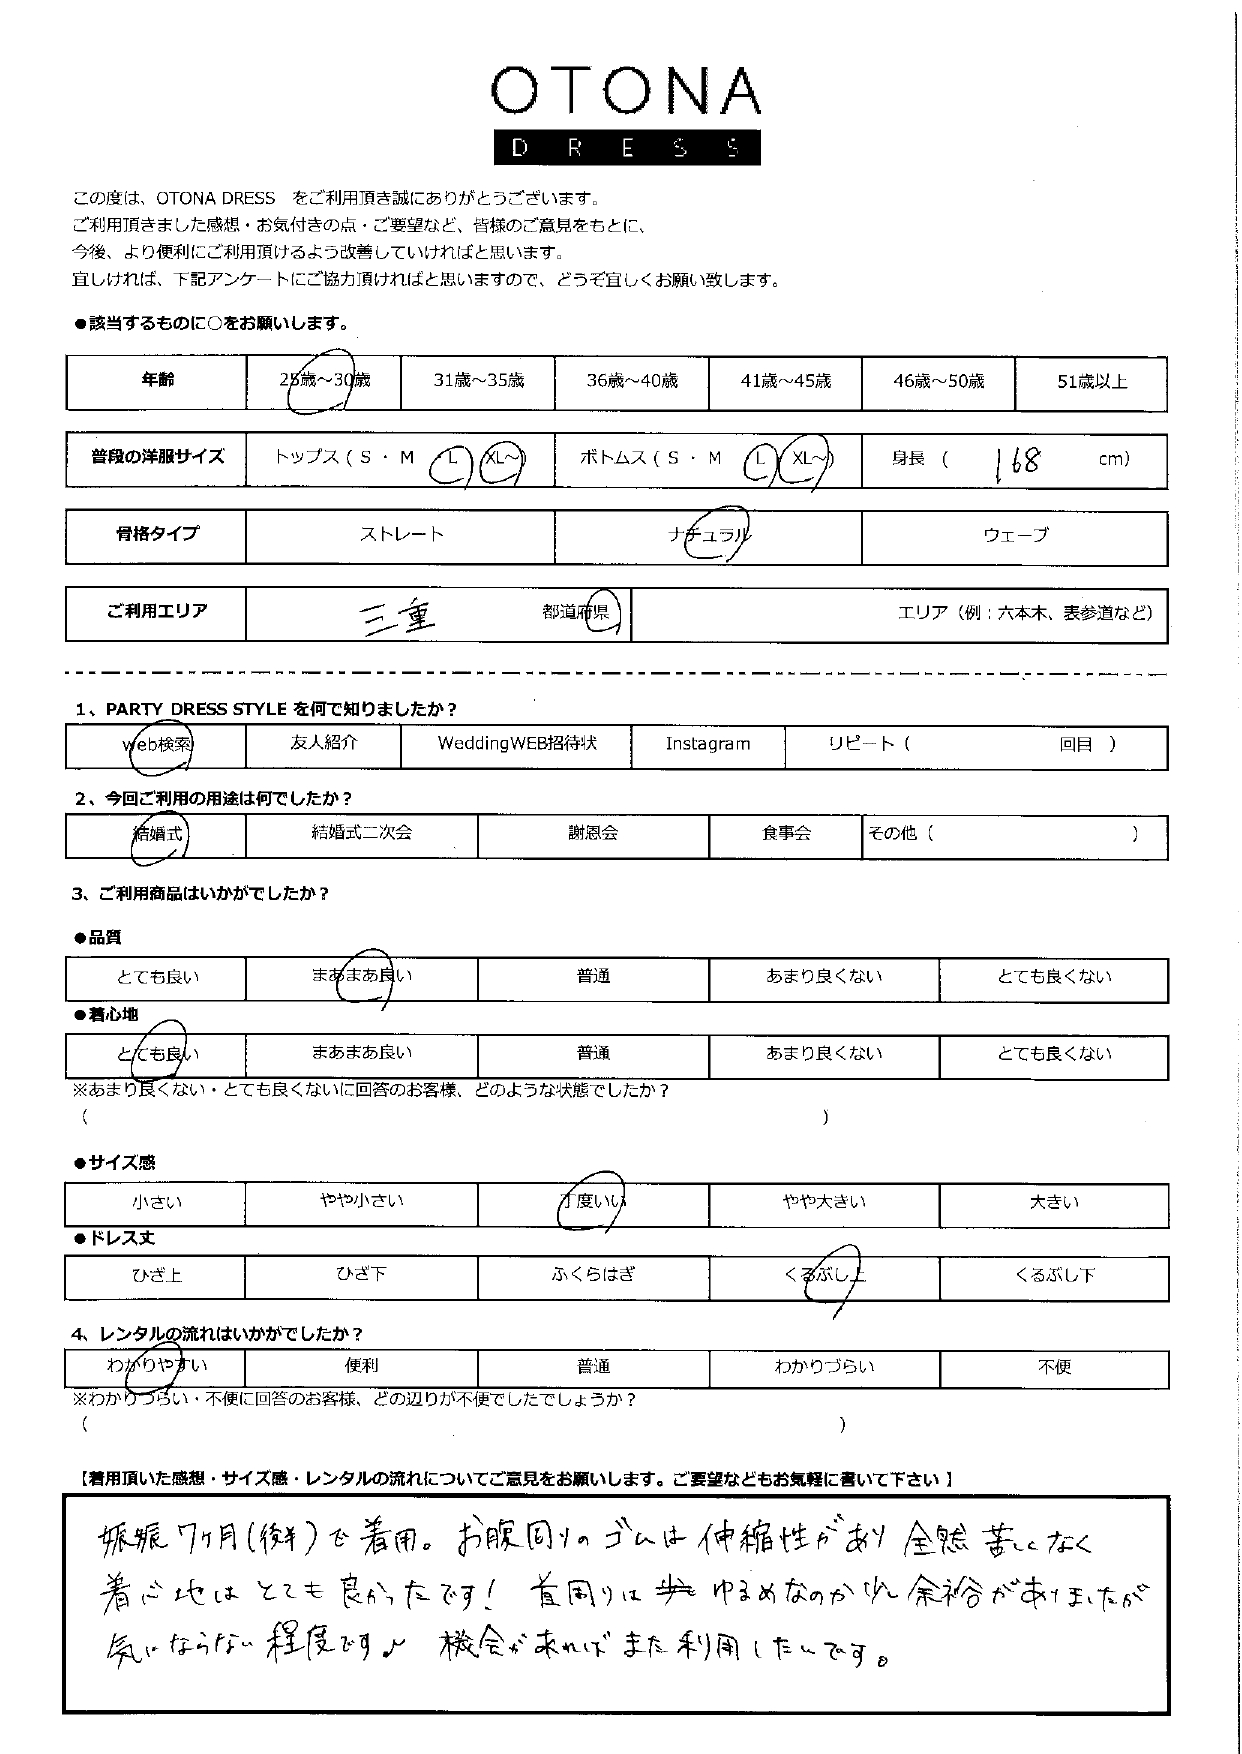 OTONA
DRESS
この度は、OTONA DRESS をご利用頂き誠にありがとうございます。
ご利用頂きました感想・お気付きの点・ご要望など、皆様のご意見をもとに、
今後、より便利にご利用頂けるよう改善していければと思います。
宜しければ、下記アンケートにご協力頂ければと思いますので、どうぞ宜しくお願い致します。
●該当するものに○をお願いします。
年齢 25歳～30歳 31歳～35歳 36歳～40歳 41歳～45歳 46歳～50歳 51歳以上
普段の洋服サイズ トップス（ S ・ M L XL～） ボトムス（ S ・ M L XL～） 身長（ 168 cm）
骨格タイプ ストレート ナチュラル ウェーブ
ご利用エリア 三重 都道府県 エリア（例：六本木、表参道など）
1、PARTY DRESS STYLE を何で知りましたか？
web検索 友人紹介 WeddingWEB招待状 Instagram リピート（ 回目 ）
2、今回ご利用の用途は何でしたか？
結婚式 結婚式二次会 謝恩会 食事会 その他（ ）
3、ご利用商品はいかがでしたか？
●品質
とても良い まあまあ良い 普通 あまり良くない とても良くない
●着心地
とても良い まあまあ良い 普通 あまり良くない とても良くない
※あまり良くない・とても良くないに回答のお客様、どのような状態でしたか？
（ ）
●サイズ感
小さい やや小さい 丁度いい やや大きい 大きい
●ドレス丈
ひざ上 ひざ下 ふくらはぎ くるぶし上 くるぶし下
4、レンタルの流れはいかがでしたか？
わかりやすい 便利 普通 わかりづらい 不便
※わかりづらい・不便に回答のお客様、どの辺りが不便でしたでしょうか？
（ ）
【着用頂いた感想・サイズ感・レンタルの流れについてご意見をお願いします。ご要望などもお気軽に書いて下さい】
妊娠7ヶ月(後半)で着用。お腹回りのゴムは伸縮性があり全然苦しくなく
着心地はとても良かったです! 首周りは ゆるめなのか少し余裕がありましたが
気にならない程度です♪ 機会があればまた利用したいです。